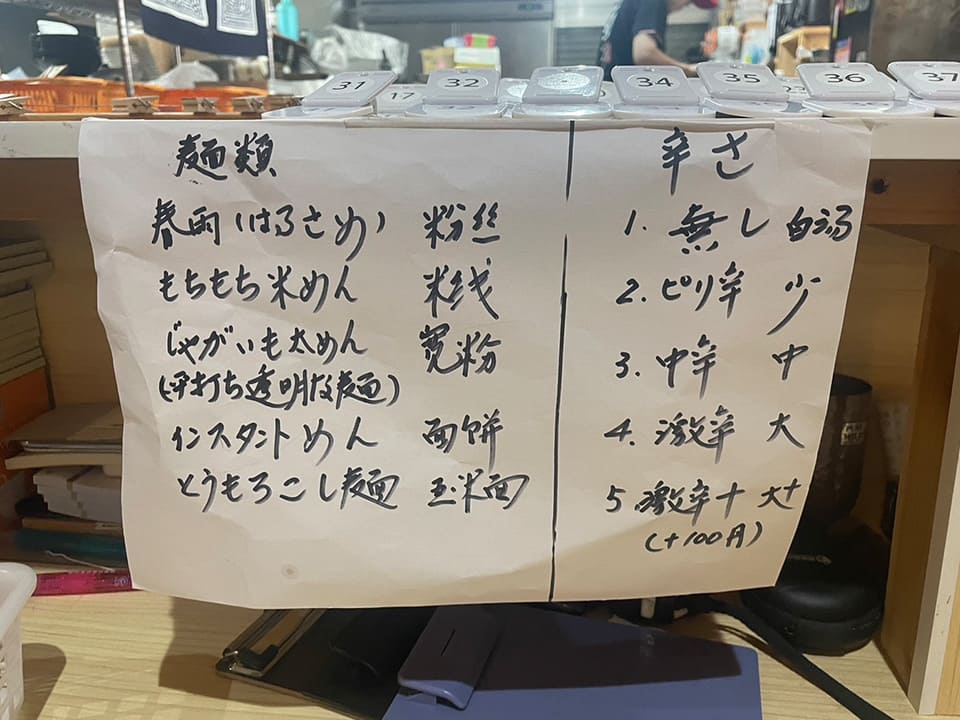 31
17
32
34
35
36
37
麺類
春雨(はるさめ) 粉丝
もちもち米めん 米线
じゃがいも太めん 宽粉
(平打ち透明な麺)
インスタントめん 面饼
とうもろこし麺 玉米面
辛さ
1. 無し 白汤
2. ピリ辛 少
3. 中辛 中
4. 激辛 大
5. 激辛+ 大+
(+100円)